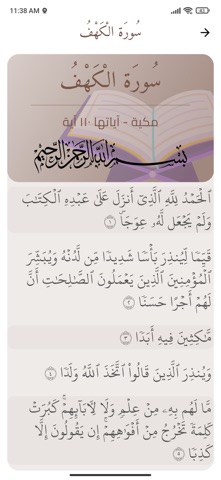 11:38 AM
سُورَة الْكَهْفُ
سُورَة الْكَهْفُ
مكية - آياتها ١١٠ آية
بِسْمِ اللَّهِ الرَّحْمَٰنِ الرَّحِيمِ
ٱلْحَمْدُ لِلَّهِ ٱلَّذِىٓ أَنزَلَ عَلَىٰ عَبْدِهِ ٱلْكِتَٰبَ
وَلَمْ يَجْعَل لَّهُۥ عِوَجَاۜ ١
قَيِّمًا لِّيُنذِرَ بَأْسًا شَدِيدًا مِّن لَّدُنْهُ وَيُبَشِّرَ
ٱلْمُؤْمِنِينَ ٱلَّذِينَ يَعْمَلُونَ ٱلصَّٰلِحَٰتِ أَنَّ
لَهُمْ أَجْرًا حَسَنًا ٢
مَّٰكِثِينَ فِيهِ أَبَدًا ٣
وَيُنذِرَ ٱلَّذِينَ قَالُوا۟ ٱتَّخَذَ ٱللَّهُ وَلَدًا ٤
مَّا لَهُم بِهِۦ مِنْ عِلْمٍ وَلَا لِـَٔابَآئِهِمْ ۚ كَبُرَتْ
كَلِمَةً تَخْرُجُ مِنْ أَفْوَٰهِهِمْ ۚ إِن يَقُولُونَ إِلَّا
كَذِبًا ٥